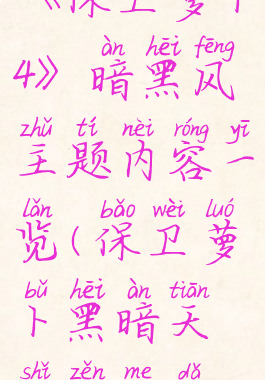 《保卫萝卜
àn hēi fēng
4》暗黑风
zhǔ tí nèi róng yī
主题内容一
lǎn bǎo wèi luó
览(保卫萝
bǔ hēi àn tiān
卜黑暗天
shǐ zěn me dǎ